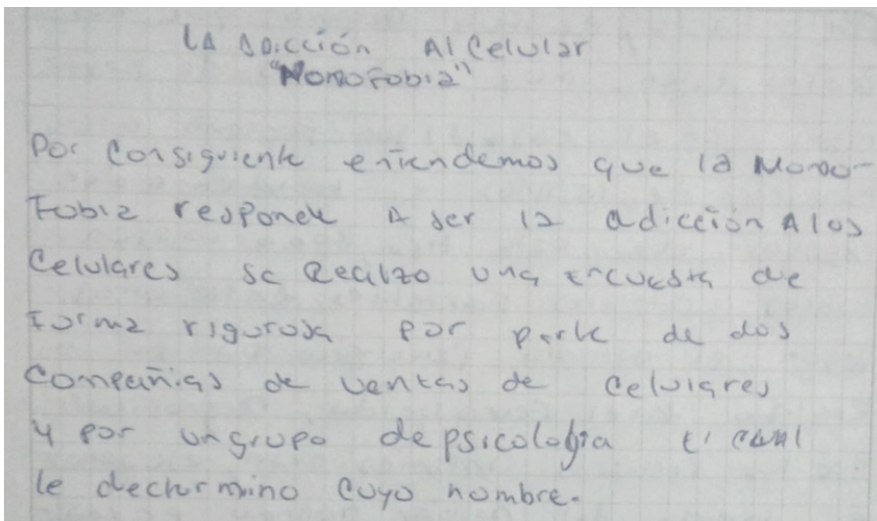 LA ADICCIÓN Al Celular
"NOMOFobia"
Por Consiguiente entendemos que la Nomo-
Fobia responde A ser la adicción A los
Celulares se Realizo una encuesta de
Forma rigurosa por parte de dos
Compañias de ventas de Celulares
y por un grupo de psicologia El cual
le determino cuyo nombre.